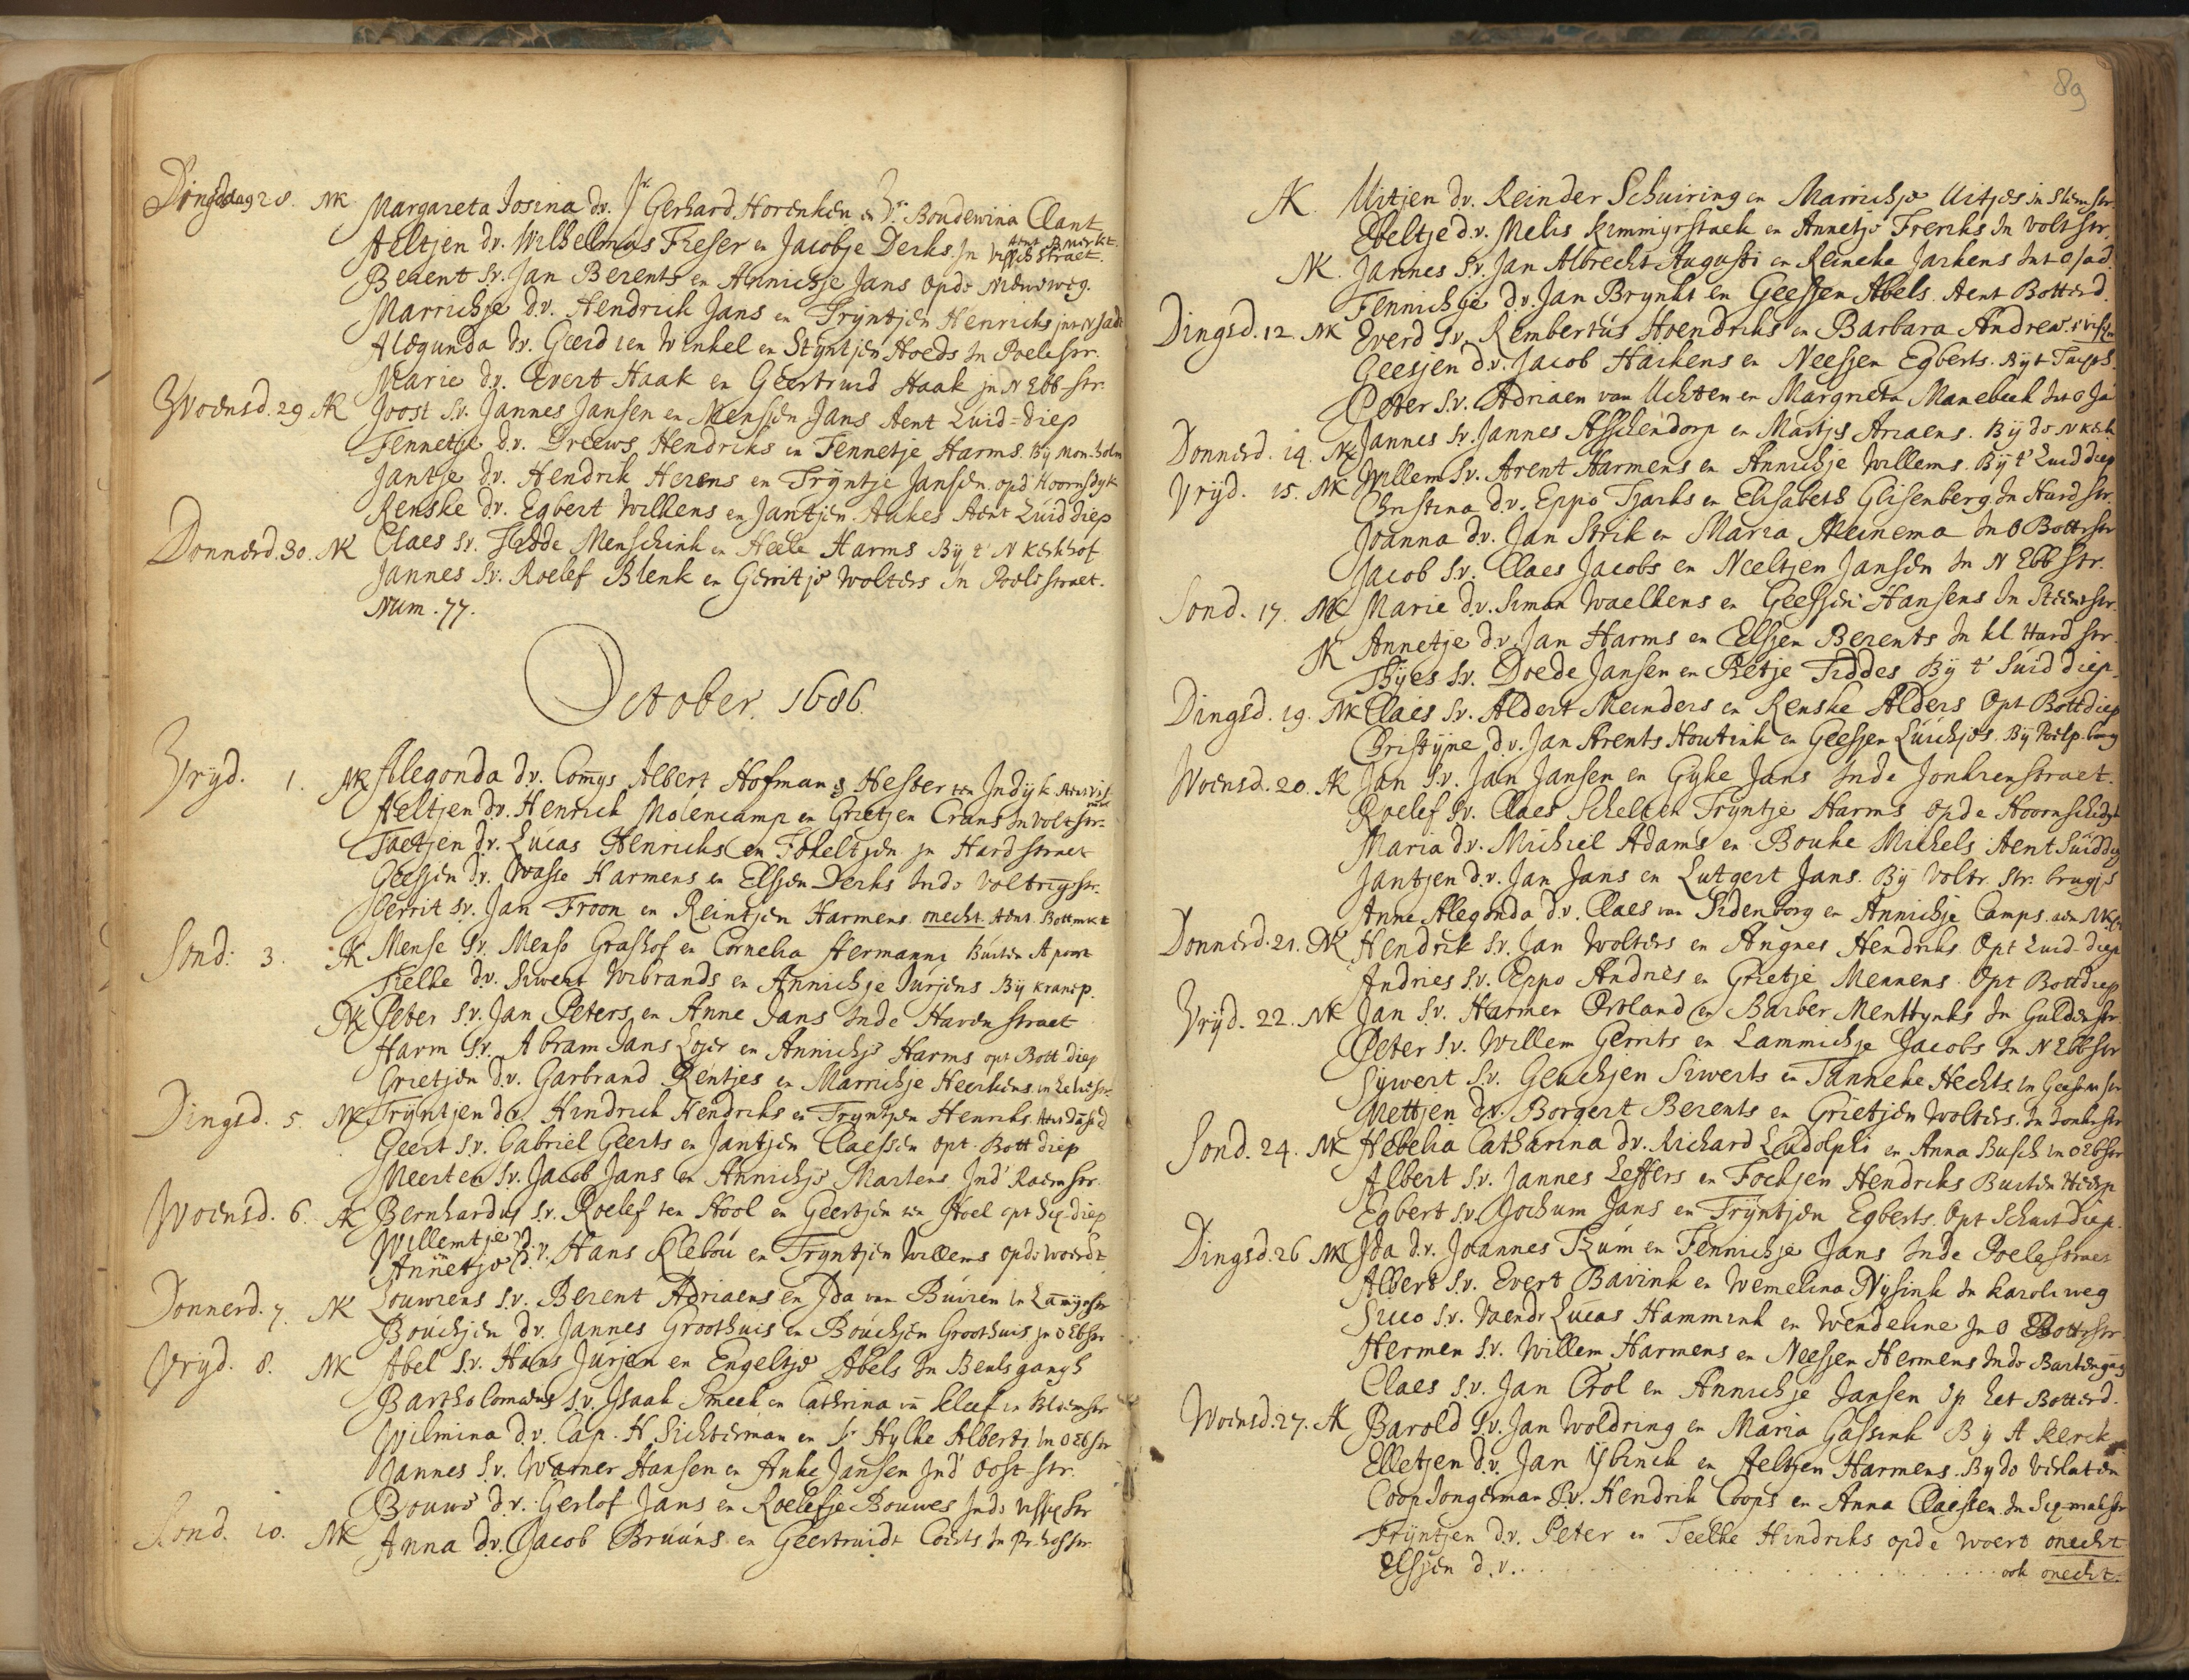 Dingsdag 28. NK Margareta Josina dr. Jr Gerhard Horenken en Jr. Boudewina Clant
Aent B mrkt.
Aeltjen dv. Wilhelmus Frieser en Jacobje Derks. In Vissch straet.
Berent sv. Jan Berents en Annichje Jans opde Nieuweweg.
Marrichje d.v. Hendrick Jans en Trÿntjen Henrichs
Alegunda dv. Geerd ten Winkel en Stÿntjen Hoeds In Poelestr.
Marie dv. Evert Haak en Geertruid Haak jn N Ebb-str.
Woensd. 29 AK Joost sv. Jannes Jansen en Mensjen Jans Aent Zuid-diep
Fennetje d.v. Dreews Hendriks en Fennetje Harms. Bij
Jantje dv. Hendrik Herens en Trÿntje Jansen. opd' Hoornsdyk
Renske dv. Egbert Wilkens en Jantjen Aukes Aent Zuid diep
Donnerd. 30. NK Claes sv. Menschink en Heele Harms Bÿ t' N Kerkhof
Jannes sv. Roelef Blenk en Gerritje Wolters In Poele straet.
Num. 77.
October. 1686.
Vrÿd. 1. NK Alegonda dv. Comys Albert Hofman & Hester ten Indÿk
Aeltjen d.v. Henrich Molencamp en Grietjen Crans In Volt str.
Taetjen dr. Lucas Henrichs en Fokeltjen jn Hard straet
Geesjen d.v. Wasse Harmens en Elsjen Derks Inde Volteringstr.
Gerrit sv. Jan Troon en Reintjen Harmens onecht. Aent. Bottmkt
Sond: 3. AK Mense sv. Menso Grashof en Cornelia Hermanni Buiten A poort
Tielke d.v. Siwert Wibrands en Annichje Jurjens Bÿ kranep.
NK Peter s.v. Jan Peters en Anne Jans Inde Haven straet
Harm s.v. Abram Jans Lojer en Annichje Harms opt Bott diep
Grietjen d.v. Garbrand Rentjes en Marrichje Heerkens
Dingsd. 5. NK Trÿntjen dv. Hindrick Hendriks en Tryntjen Henriks
Geert s.v. Gabriel Geerts en Jantjen Claessen opt Bott diep
Meerten s.v. Jacob Jans en Annichje Martens. Ind' Raemstr.
Woensd. 6. AK Bernhardus s.v. Roelef ten Hool en Geertjen ten Hoel
Willemtje
Annetje d.v. Hans Klebou en Tryntjen Willems opde Woerdt
Donnerd. 7. NK Louwrens s.v. Berent Adriaens en Ida van Buiren
Bouchjen dv. Jannes Groothuis en Bouchjen Groothuis jn O Ebstr
Vrÿd. 8. NK Abel s.v. Hans Jurjen en Engeltje Abels In Beulsgangh
Bartholomeus s.v. Isaak Smeek en Cathrina vn Kleef
Wilmina d.v. Cap. H. Sichterman en Jr Hylke Alberts In O Ebstr
Jannes s.v. Warner Hansen en Anke Jansen Ind' Oost str.
Bouwe d.v. Gerlof Jans en Roelefje Bouwes Inde
Sond. 10. NK Anna d.v. Jacob Bruuns en Geertruidt Coerts
89
AK. Uitjen dv. Reinder Schuiring en Marrichje Uitjes
Ebeltje d.v. Melis en Annetje Frenks In Volt str.
NK. Jannes s.v. Jan Albrecht Augusti en Reineke Jarkens
Fennichje dv. Jan Brynks en Geesjen Abels. Aent Botterd.
Dingsd. 12. NK Everd s.v. Rembertus Hoendriks en Barbara Andrea.
Geesjen d.v. Jacob Haikens en Neesjen Egberts.
Peter s.v. Adriaen van Uchten en Margrieta Manebeek
Donnerd. 14. NK Jannes s.v. Jannes Asschendorp en Martjes Ariaens. Bÿ de N kerk
Vrijd. 15. NK Willem s.v. Arent Harmens en Annichje Willems. Bÿ t' Zuid diep
Christina d.v. Eppo Tjarks en Elisabeth Glisenberg In Hard str.
Joanna dv. Jan Strik en Maria Meinema In O Bottrstr
Jacob s.v. Claes Jacobs en Neeltjen Jansen In N Ebb str.
Sond. 17. NK Marie d.v. Siman Waelkens en Geesjen Hansens In Steenstr.
AK Annetje d.v. Jan Harms en Elsjen Berents In kl. Hard str.
Thÿes s.v. Doede Jansen en Rietje Tiddes Bÿ t' Suid diep.
Dingsd. 19. NK Claes s.v. Aldert Meinders en Renske Alders Opt Bottdiep
Christÿne d.v. Jan Arents Houtink en Geesjen Luichjes. Bÿ
Woensd. 20. AK Jan s.v. Jan Jansen en Gyke Jans Inde Jonkrenstraet.
Roelef s.v. Claes Schelt en Tryntje Harms opde
Maria dv. Michiel Adams en Bouke Michels Aent Suidd
Jantjen d.v. Jan Jans en Lutgert Jans. Bÿ Voltr. str. brugje
Anne Alegonda d.v. Claes van Sidenborg en Annichje Camps.
Donnerd. 21. NK Hendrik s.v. Jan Wolters en Angnes Hendriks Opt Zuid-diep
Andries s.v. Eppo Andries en Grietje Mennens. Opt Bottdiep
Vrÿd. 22. NK Jan s.v. Harmen Ortland en Barber Menttynks In Guldenstr.
Peter s.v. Willem Gerrits en Lammichje Jacobs In N Ebbstr
Sÿwert s.v. Geuchjen Siwerts en Tanneke Hechts.
Mettjen d.v. Borgert Berents en Grietjen Wolters. In Donkerstr
Sond. 24. NK Hebelia Catharina d.v. Richard Ludolphi en Anna Busch in O Ebstr
Albert s.v. Jannes Leffers en Fockjen Hendriks Buiten
Egbert s.v. Jochum Jans en Trÿntjen Egberts. Opt Schuit diep.
Dingsd. 26 NK Ida d.v. Joannes Tzum en Fennichje Jans Inde Poelestraet
Albert s.v. Evert Bavink en Wemelina Nÿsink In Karole weg
Sicco s.v. Vaendr Lucas Hammink en Wendeline In O Bottrstr.
Hermen s.v. Willem Harmens en Neesjen Hermens Inde
Claes s.v. Jan Crol en Annichje Jansen Op het Botterd.
Woensd. 27. AK Barold s.v. Jan Woldring en Maria Gassink Bÿ A kerck
Elletjen d.v. Jan Ÿbinck en Aeltjen Harmens. By de Verlaten
Coop Jongerman s.v. Hendrik Coops en Anna Claessen
Trÿntjen d.v. Peter en Teelke Hindriks opde Woert onecht
Elsjen d.v. . . . . . . . ook onecht.